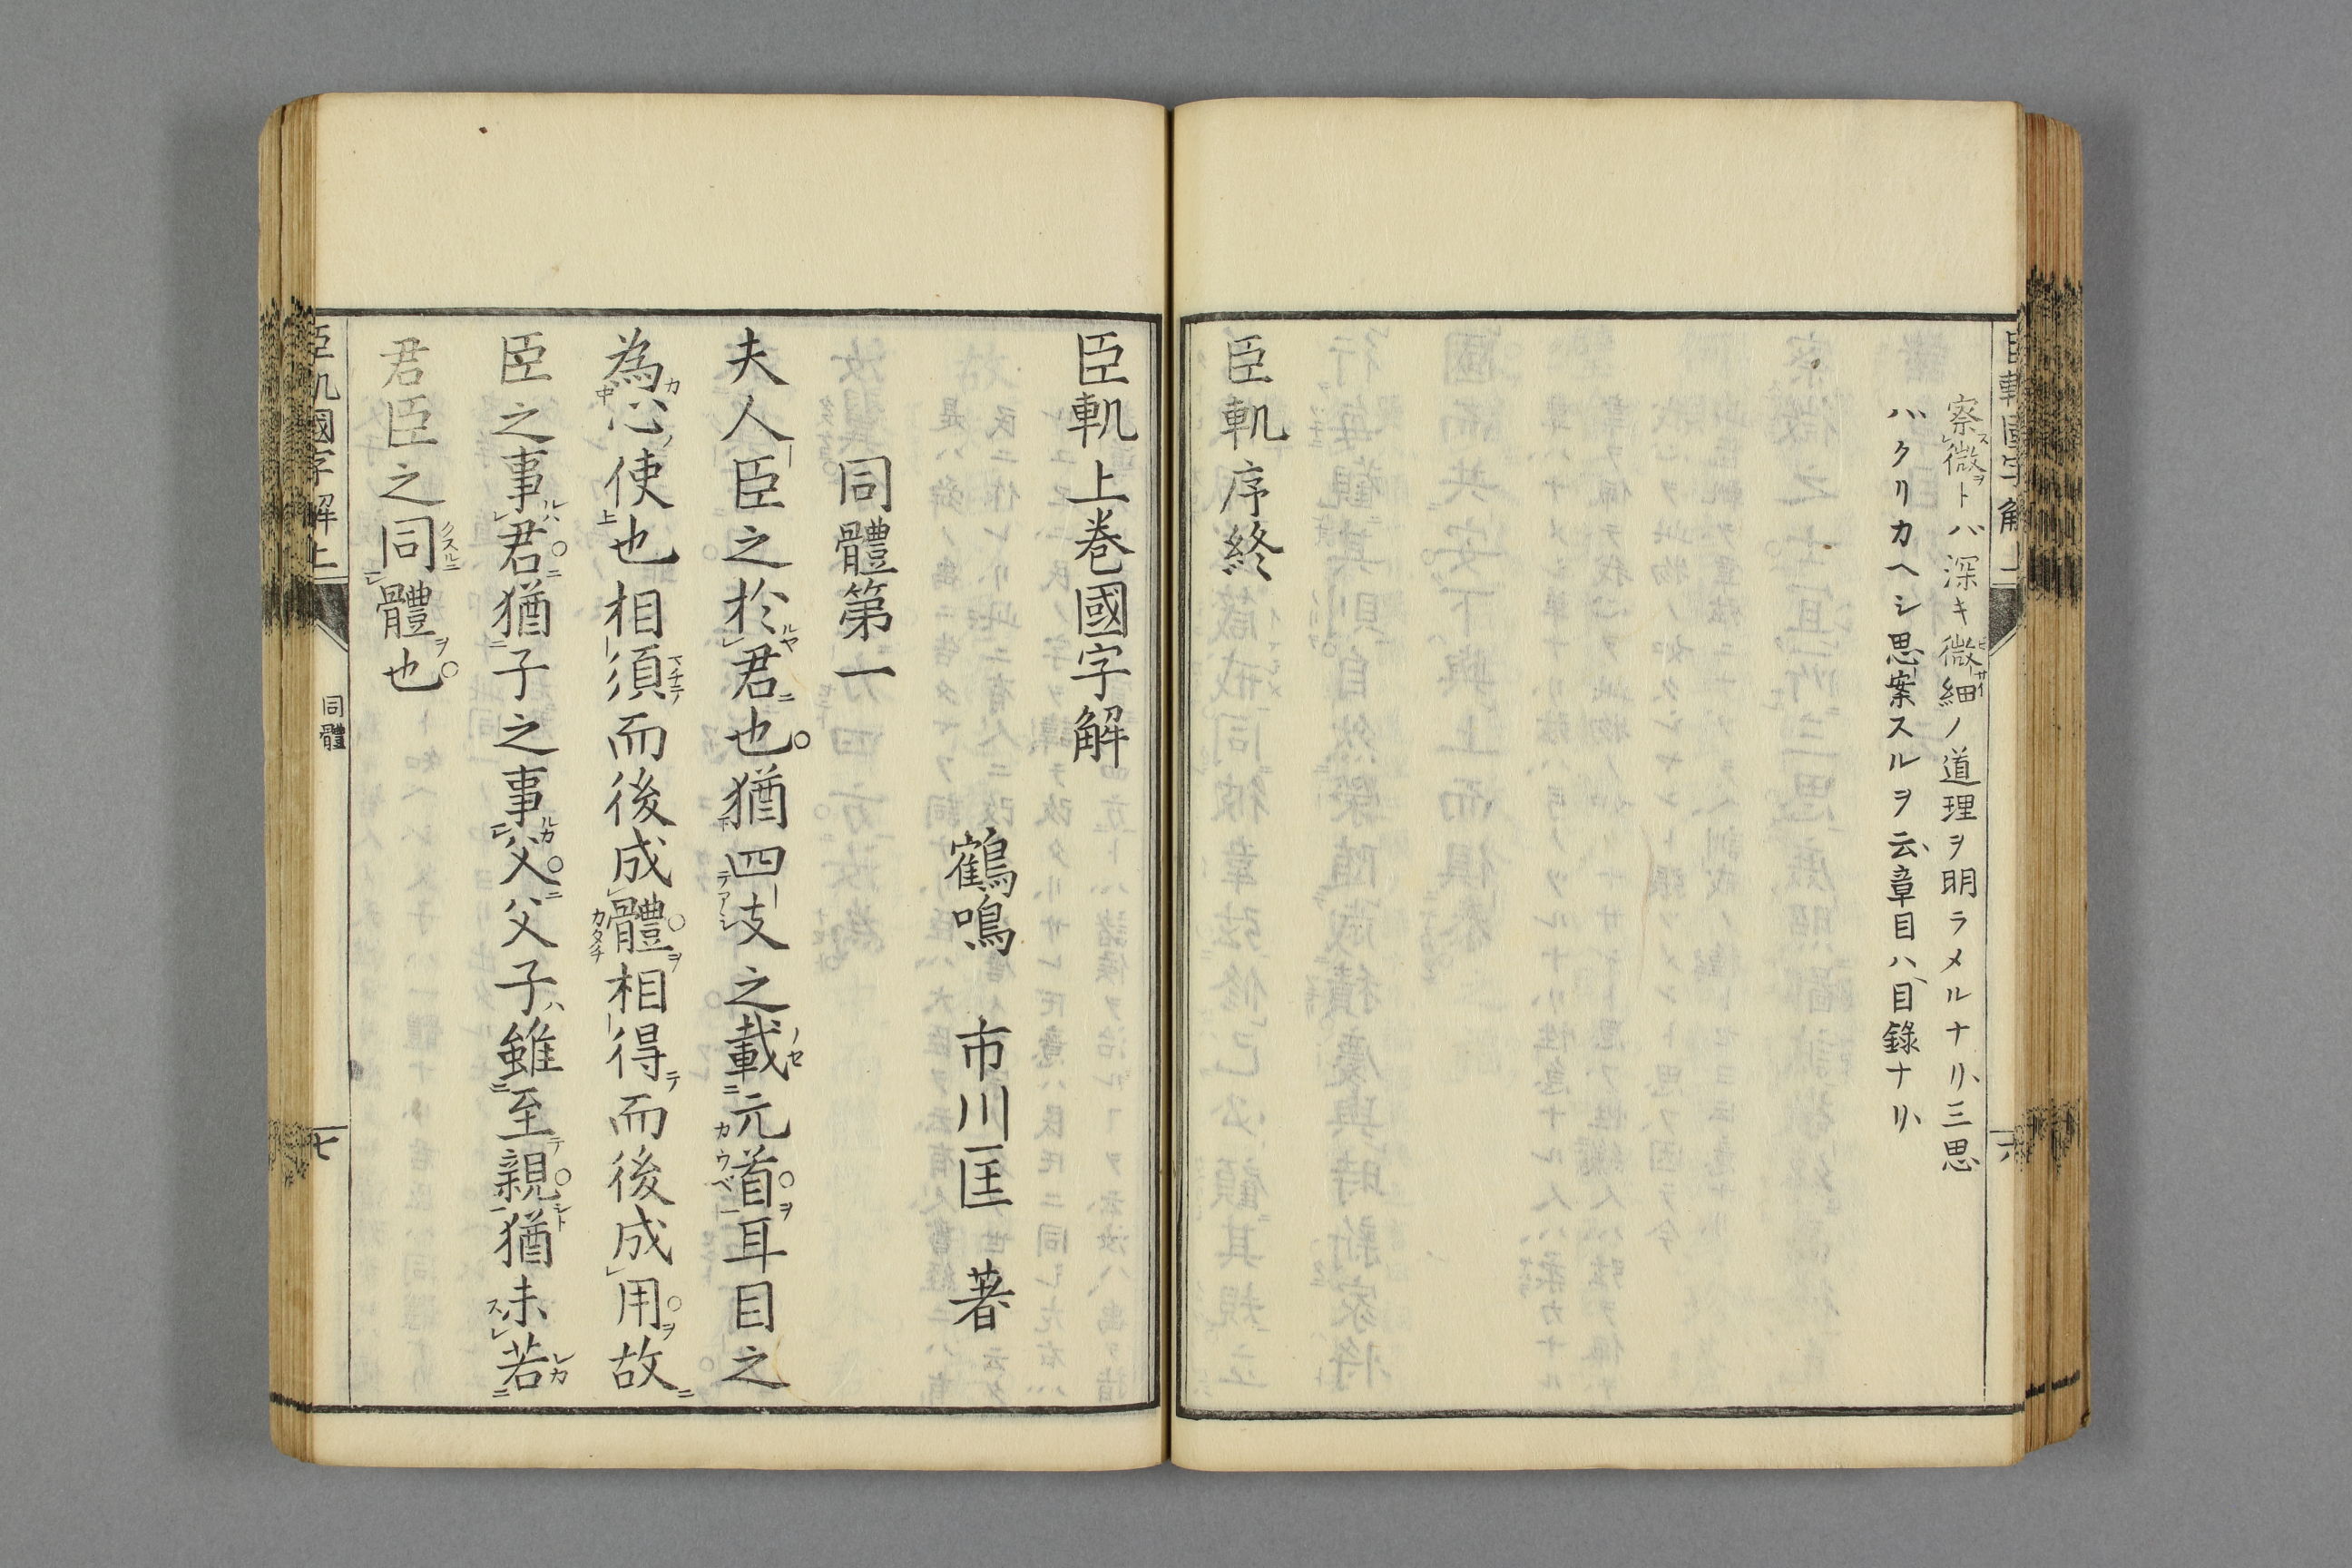 察微トハ深キ微細ノ道理ヲ明ラメルナリ、三思
ハクリカヘシ思案スルヲ云、章目ハ、目錄ナリ、
臣軓序終
臣軓上巻國字解
鶴鳴 市川匡 著
同體第一
夫人臣之於君也猶四支之載元首耳目之
為心使也相須而後成體相得而後成用故
臣之事君猶子之事父父子雖至親猶未若
君臣之同體也
臣軓國字解上 同體 七